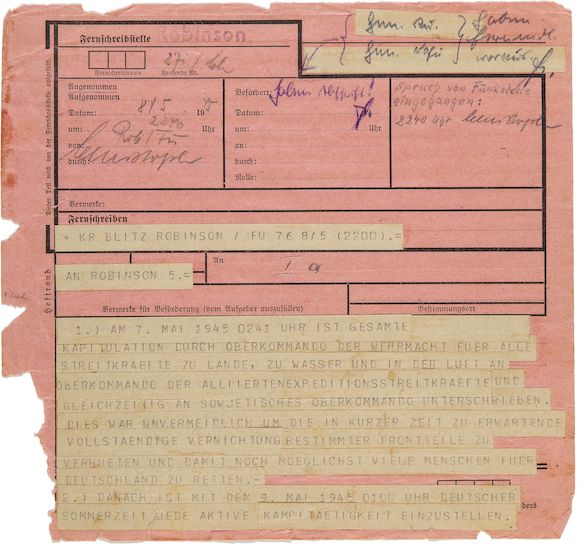 Robinson
Fernschreibstelle
Fernschreibname
Laufende Nr.
27.
Angenommen
Aufgenommen
Datum: 8/5 19
um: 2240 Uhr
von: Rob/Fu
durch:
Befördert:
haben Abschrift!
Datum: 19
um: Uhr
an:
durch:
Rolle:
haben
voraus
Spruch von Funkstelle
eingegangen:
2240 Uhr
Dieser Teil wird von der Fernschreibstelle ausgefüllt.
Vermerke:
Fernschreiben
+ KR BLITZ ROBINSON / FU 76 8/5 (2200).=
AN ROBINSON 5.=
An
I a
Heftrand
Vermerke für Beförderung (vom Aufgeber auszufüllen)
Bestimmungsort
1.) AM 7. MAI 1945 0241 UHR IST GESAMTE
KAPITULATION DURCH OBERKOMMANDO DER WEHRMACHT FUER ALLE
STREITKRAEFTE ZU LANDE, ZU WASSER UND IN DER LUFT AN
OBERKOMMANDO DER ALLIIERTENEXPEDITIONSSTREITKRAEFTE UND
GLEICHZEITIG AN SOWJETISCHES OBERKOMMANDO UNTERSCHRIEBEN.
DIES WAR UNVERMEIDLICH UM DIE IN KURZER ZEIT ZU ERWARTENDE
VOLLSTAENDIGE VERNICHTUNG BESTIMMTER FRONTTEILE ZU
VERHUETEN UND DAMIT NOCH MOEGLICHST VIELE MENSCHEN FUER
DEUTSCHLAND ZU RETTEN.-
2.) DANACH IST MIT DEM 9. MAI 1945 0100 UHR DEUTSCHER
SOMMERZEIT JEDE AKTIVE KAMPFTAETIGKEIT EINZUSTELLEN.